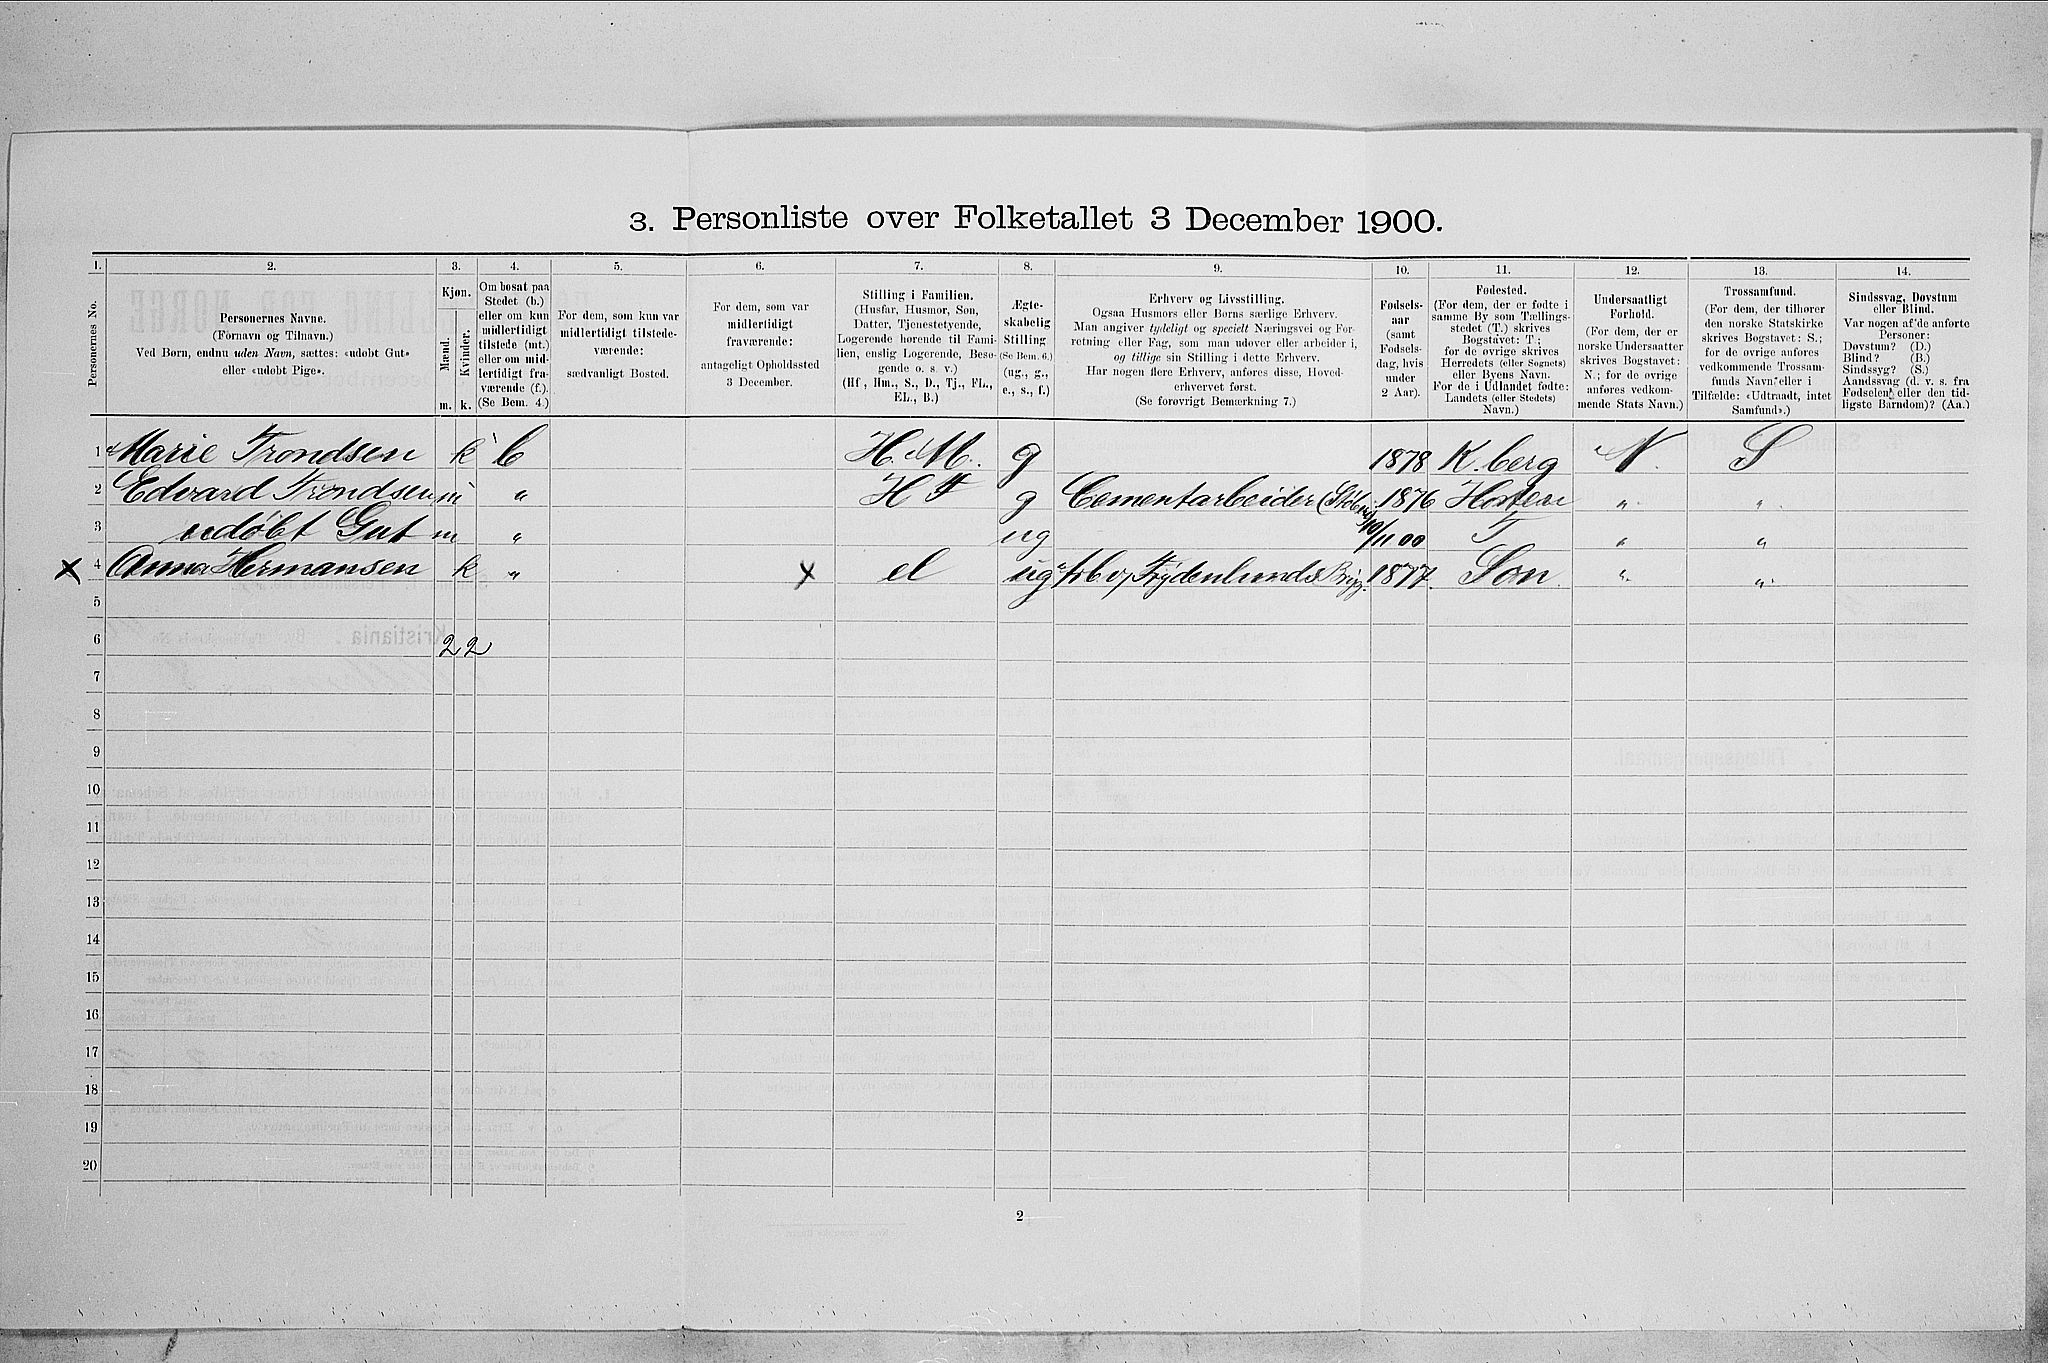 3. Personliste over Folketallet 3 December 1900.
1. 2. 3. 4. 5. 6. 7. 8. 9. 10. 11. 12. 13. 14.
Personernes No.
Personernes Navne.
(Fornavn og Tilnavn.)
Ved Børn, endnu uden Navn, sættes: «udøbt Gut»
eller «udøbt Pige».
Kjøn.
Mænd.
Kvinder.
m. k.
Om bosat paa
Stedet (b.)
eller om kun
midlertidigt
tilstede (mt.)
eller om mid-
lertidigt fra-
værende (f.).
(Se Bem. 4.)
For dem, som kun var
midlertidigt tilstede-
værende:
sædvanligt Bosted.
For dem, som var
midlertidigt
fraværende:
antageligt Opholdssted
3 December.
Stilling i Familien.
(Husfar, Husmor, Søn,
Datter, Tjenestetyende,
Logerende hørende til Fami-
lien, enslig Logerende, Besø-
gende o. s. v.)
(Hf., Hm., S., D., Tj., FL.,
EL., B.)
Ægte-
skabelig
Stilling
(Se Bem. 6.)
(ug., g.,
e., s., f.)
Erhverv og Livsstilling.
Ogsaa Husmors eller Børns særlige Erhverv.
Man angiver tydeligt og specielt Næringsvei og For-
retning eller Fag, som man udøver eller arbeider i,
og tillige sin Stilling i dette Erhverv.
Har nogen flere Erhverv, anføres disse, Hoved-
erhvervet først.
(Se forøvrigt Bemærkning 7.)
Fødsels-
aar
(samt
Fødsels-
dag, hvis
under
2 Aar).
Fødested.
(For dem, der er fødte i
samme By som Tællings-
stedet (T.) skrives
Bogstavet: T.;
for de øvrige skrives
Herredets (eller Sognets)
eller Byens Navn.
For de i Udlandet fødte:
Landets (eller Stedets)
Navn.)
Undersaatligt
Forhold.
(For dem, der er
norske Undersaatter
skrives Bogstavet:
N.; for de øvrige
anføres vedkom-
mende Stats Navn.)
Trossamfund.
(For dem, der tilhører
den norske Statskirke
skrives Bogstavet: S.;
for de øvrige anføres
vedkommende Trossam-
funds Navn, eller i
Tilfælde: «Udtraadt, intet
Samfund».)
Sindssvag, Døvstum
eller Blind.
Var nogen af de anførte
Personer:
Døvstum? (D.)
Blind? (B.)
Sindssyg? (S.)
Aandssvag (d. v. s. fra
Fødselen eller den tid-
ligste Barndom)? (Aa.)
1 Marie Trondsen k b H. M. g 1878 K.berg N. S
2 Edvard Trondsen m " H F g Cementarbeider 1876 Horten " "
3 udøbt Gut m " ug 10/11 00 T " "
x 4 Anna Hermansen k " x el ug arb v/ Frydenlunds Brygg. 1877. Son. " "
5
6 2 2
7
8
9
10
11
12
13
14
15
16
17
18
19
20
2